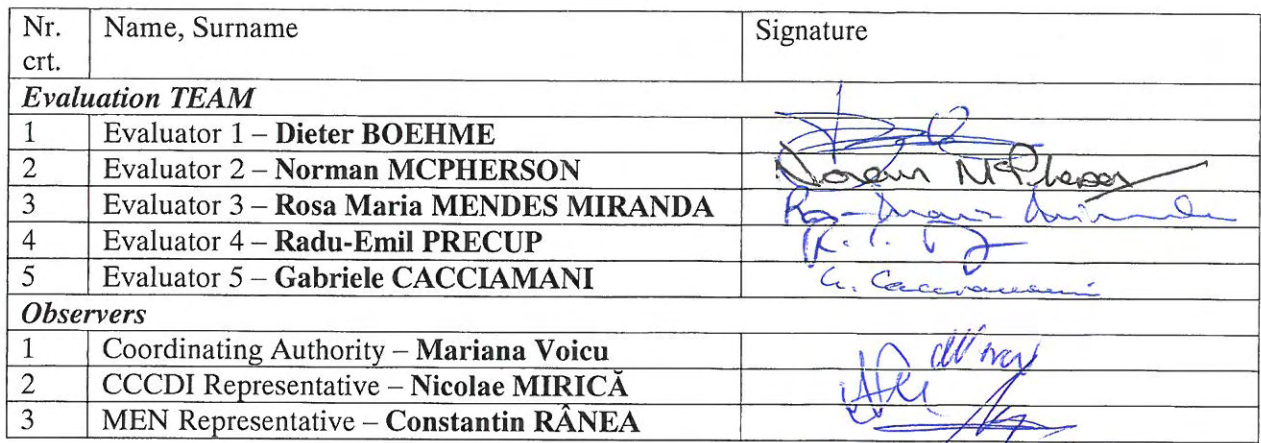 Nr. crt. Name, Surname Signature
Evaluation TEAM
1 Evaluator 1 – Dieter BOEHME
2 Evaluator 2 – Norman MCPHERSON Norman McPherson
3 Evaluator 3 – Rosa Maria MENDES MIRANDA
4 Evaluator 4 – Radu-Emil PRECUP
5 Evaluator 5 – Gabriele CACCIAMANI G. Cacciamani
Observers
1 Coordinating Authority – Mariana Voicu
2 CCCDI Representative – Nicolae MIRICĂ
3 MEN Representative – Constantin RÂNEA